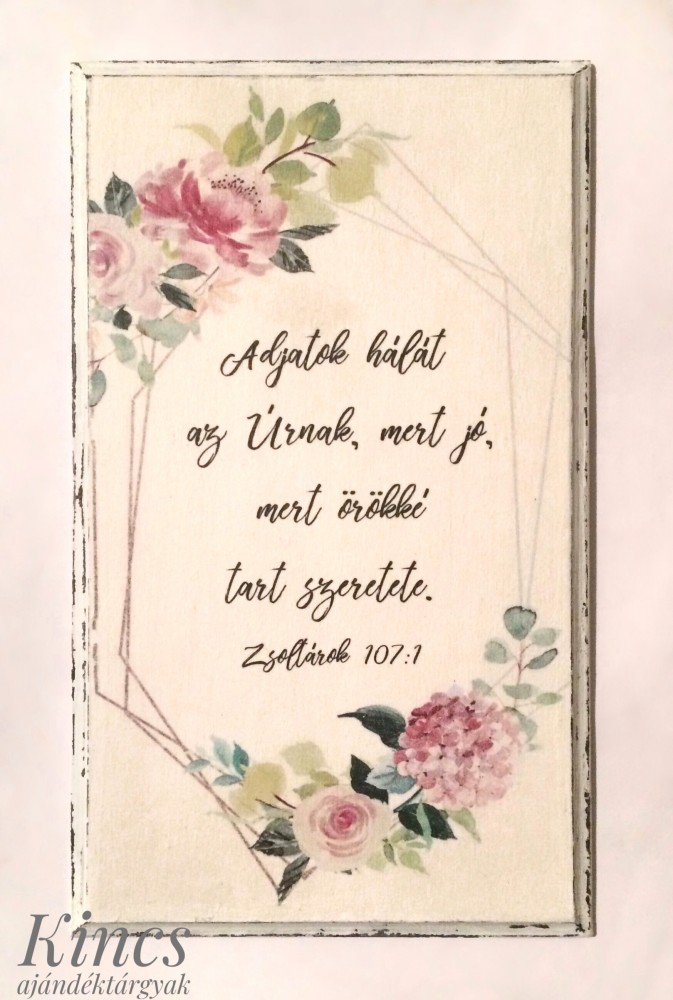 Adjatok hálát
az Úrnak, mert jó,
mert örökké
tart szeretete.
Zsoltárok 107:1
Kincs
ajándéktárgyak